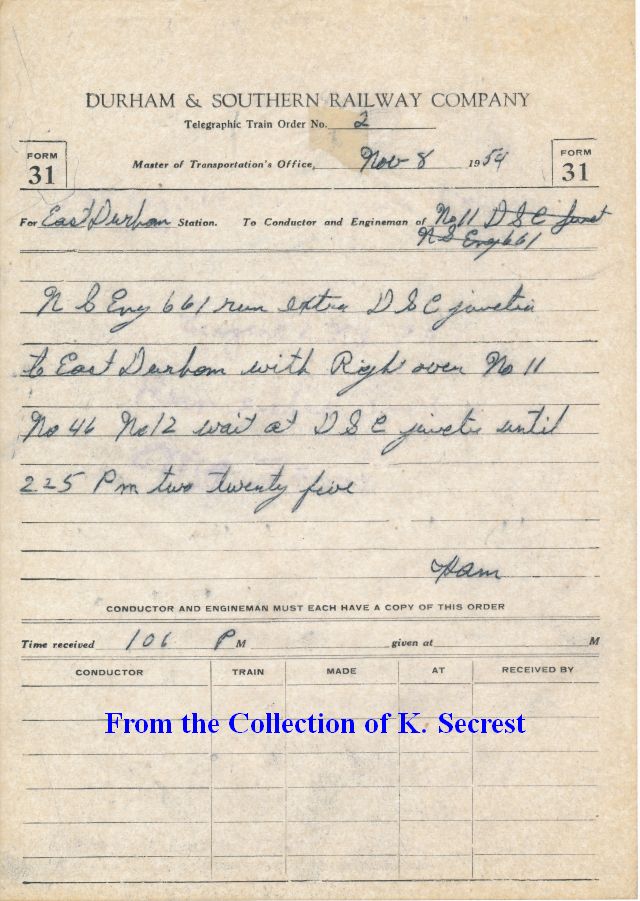 DURHAM & SOUTHERN RAILWAY COMPANY
Telegraphic Train Order No. 2
FORM 31
Master of Transportation's Office, Nov 8 1954
FORM 31
For East Durham Station. To Conductor and Engineman of No 11 D S C
N S Eng 661
N S Eng 661 run extra D S C
to East Durham with Right over No 11
No 46 No 12 wait at D S C until
225 Pm two twenty five
Ham
CONDUCTOR AND ENGINEMAN MUST EACH HAVE A COPY OF THIS ORDER
Time received 106 P M given at M
CONDUCTOR TRAIN MADE AT RECEIVED BY
From the Collection of K. Secrest